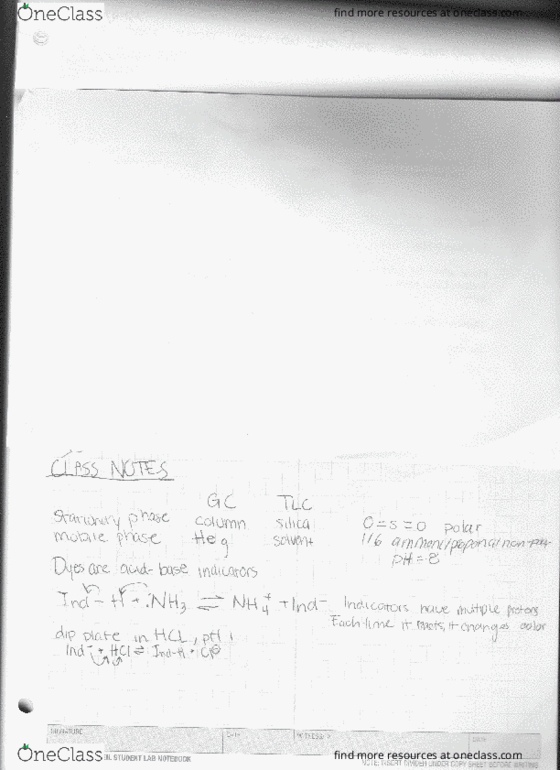 OneClass
find more resources at oneclass.com
CLASS NOTES
GC TLC
Stationary phase column silica
mobile phase He g solvent
O=S=O polar
pH = 8
Dyes are acid-base indicators
Ind-H + :NH₃ ⇌ NH₄⁺ + Ind⁻
Indicators have multiple protons
Each time it reacts, it changes color
dip plate in HCl, pH 1
Ind⁻ + HCl ⇌ Ind-H + Cl⊖
SIGNATURE
DATE
WITNESS
DATE
OneClass
STUDENT LAB NOTEBOOK
find more resources at oneclass.com
NOTE: INSERT DIVIDER UNDER COPY SHEET BEFORE WRITING